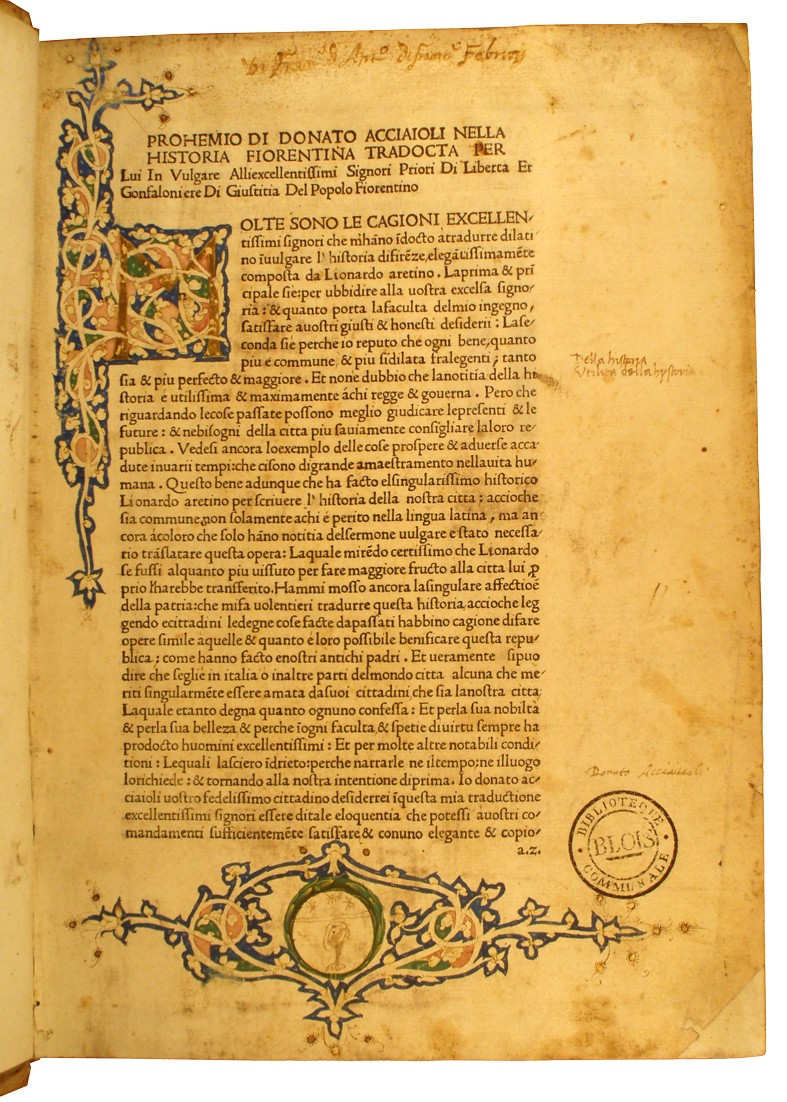 PROHEMIO DI DONATO ACCIAIOLI NELLA
HISTORIA FIORENTIÑA TRADOCTA PER
Lui In Vulgare Alliexcellentiſſimi Signori Priori Di Liberta Et
Gonfaloniere Di Giuſtitia Del Popolo Fiorentino
MOLTE SONO LE CAGIONI EXCELLEN/
tiſſimi ſignori che m'hāno īdocto atradurre dilati
no īuulgare l'hiſtoria difirēze, elegātiſſimamēte
compoſta da Lionardo aretino. Laprima & prī
cipale ſie: per ubbidire alla uoſtra excelſa ſigno/
ria: & quanto porta lafaculta delmio ingegno,
ſatiſfare auoſtri giuſti & honeſti deſiderii: Laſe/
conda ſiē perche io reputo che ogni bene, quanto
piu e commune, & piu ſidilata fralegenti; tanto
ſia & piu perfecto & maggiore. Et none dubbio che lanotitia della hi
ſtoria e utiliſſima & maximamente áchi regge & gouerna. Pero che
riguardando lecoſe paſſate poſſono meglio giudicare lepreſenti & le
future: & nebiſogni della citta piu ſauiamente conſigliare laloro re/
publica. Vedeſi ancora loexemplo delle coſe proſpere & aduerſe acca/
dute inuarii tempi: che ciſono digrande amaeſtramento nellauita hu/
mana. Queſto bene adunque che ha facto elſingulariſſimo hiſtorico
Lionardo aretino per ſcriuere l'hiſtoria della noſtra citta: accioche
ſia commune, non ſolamente achi é perito nella lingua latina, ma an
cora ácoloro che ſolo hāno notitia delſermone uulgare e ſtato neceſſa/
rio trāſlatare queſta opera: Laquale mirēdo certiſſimo che Lionardo
ſe fuſſi alquanto piu uiſſuto per fare maggiore fructo alla citta lui ꝓ
prio lharebbe tranſferito. Hammi moſſo ancora laſingulare affectioē
della patria: che mifa uolentieri tradurre queſta hiſtoria, accioche leg
gendo ecittadini ledegne coſe facte dapaſſati habbino cagione difare
opere ſimile aquelle & quanto e loro poſſibile benificare queſta repu/
blica; come hanno facto enoſtri antichi padri. Et ueramente ſipuo
dire che ſeglie in italia o inaltre parti delmondo citta alcuna che me/
riti ſingularmēte eſſere amata daſuoi cittadini, che ſia lanoſtra citta:
Laquale etanto degna quanto ognuno confeſſa: Et perla ſua nobilta
& perla ſua belleza & perche īogni faculta, & ſpetie diuirtu ſempre ha
prodocto huomini excellentiſſimi: Et per molte altre notabili condi/
tioni: Lequali laſciero īdrieto: perche narrarle ne iltempo; ne illuogo
lorichiede: & tornando alla noſtra intentione diprima. Io donato ac/
ciaioli uoſtro fedeliſſimo cittadino deſiderrei īqueſta mia traductione
excellentiſſimi ſignori eſſere ditale eloquentia che poteſſi auoſtri co/
mandamenti ſufficientemēte ſatiſfare & conuno elegante & copio/
a.z.
Della hystoria
Utilità della hystoria
Donato Acciaiuoli
BIBLIOTEQUE
BLOIS
COMMUNALE